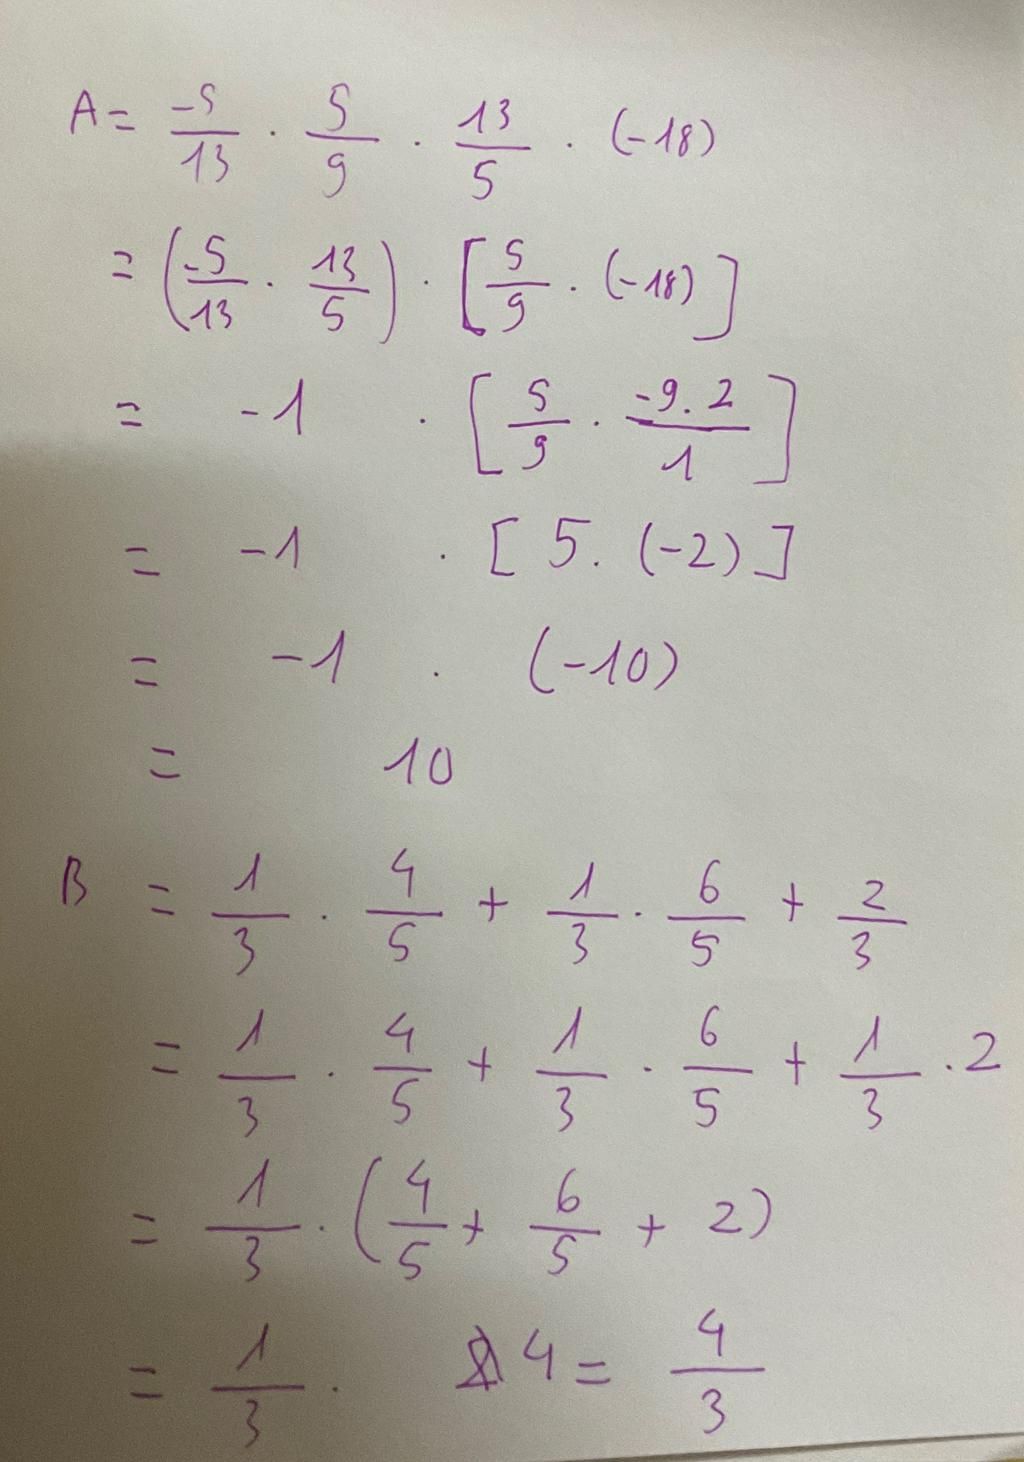 A = -5/13 . 5/9 . 13/5 . (-18)
= (-5/13 . 13/5) . [5/9 . (-18)]
= -1 . [5/9 . -9.2/1]
= -1 . [5. (-2)]
= -1 . (-10)
= 10
B = 1/3 . 4/5 + 1/3 . 6/5 + 2/3
= 1/3 . 4/5 + 1/3 . 6/5 + 1/3 . 2
= 1/3 . (4/5 + 6/5 + 2)
= 1/3 . 4 = 4/3